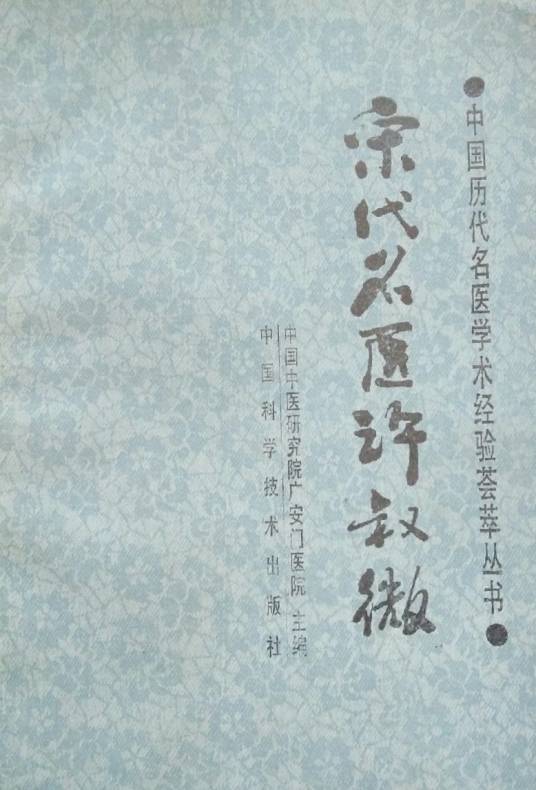 ●中国历代名医学术经验荟萃丛书●
宋代名医许叔微
中国中医研究院广安门医院 主编
中国科学技术出版社